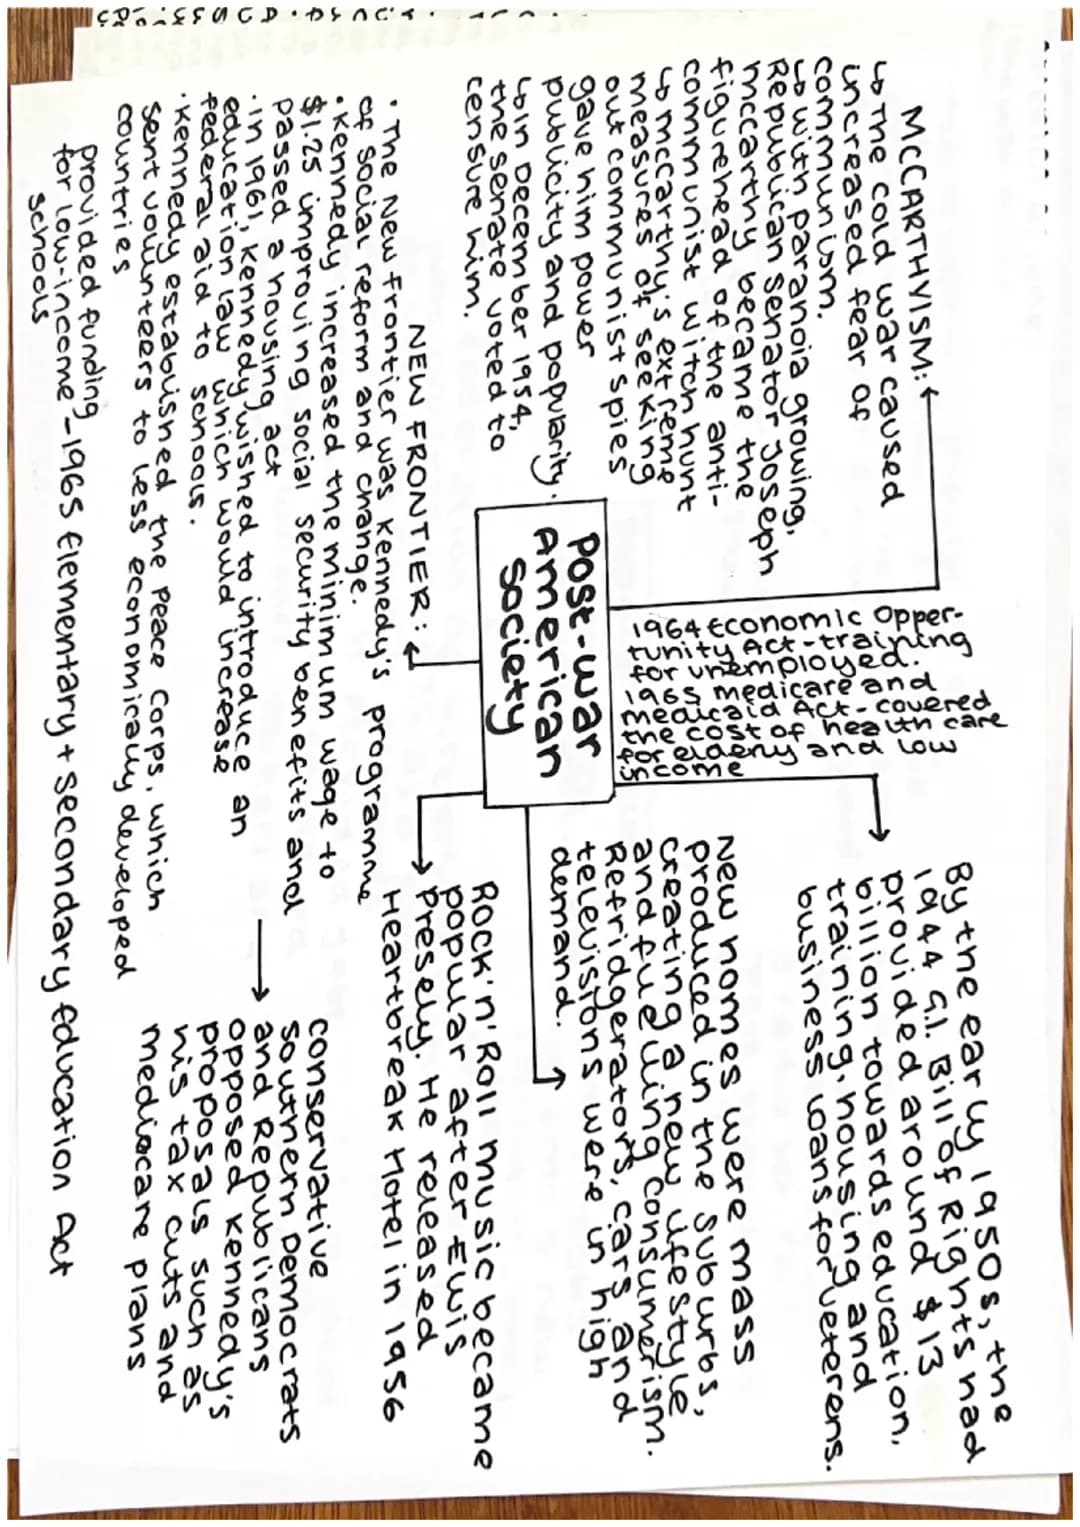 MCCARTHYISM:
↳ The cold war caused
increased fear of
communism.
↳ with paranoia growing,
Republican senator Joseph
McCarthy became the
figurehead of the anti-
communist witch hunt
↳ McCarthy's extreme
measures of seeking
out communist spies
gave him power
publicity and popularity.
↳ in December 1954,
the senate voted to
censure him.
post-war
American
Society
1964 Economic Opper-
tunity Act - training
for unemployed.
1965 medicare and
medicaid Act - covered
the cost of health care
for elderly and low
income
By the early 1950s, the
1944 G.I. Bill of Rights had
provided around $13
billion towards education,
training, housing and
business loans for veterens.
New homes were mass
produced in the suburbs,
creating a new lifestyle
and fuelling consumerism.
Refridgerators, cars and
televisions were in high
demand.
Rock 'n' Roll music became
popular after Elvis
Presely. He released
Heartbreak Hotel in 1956
NEW FRONTIER:
• The New Frontier was Kennedy's programme
of social reform and change.
• Kennedy increased the minimum wage to
$1.25 improving social security benefits and
passed a housing act
• in 1961, Kennedy wished to introduce an
education law which would increase
federal aid to schools.
• Kennedy established the Peace Corps, which
sent volunteers to less economically developed
countries
conservative
Southern Democrats
and Republicans
opposed Kennedy's
proposals such as
his tax cuts and
mediacare plans
provided funding - 1965 Elementary + Secondary Education Act
for low-income
schools